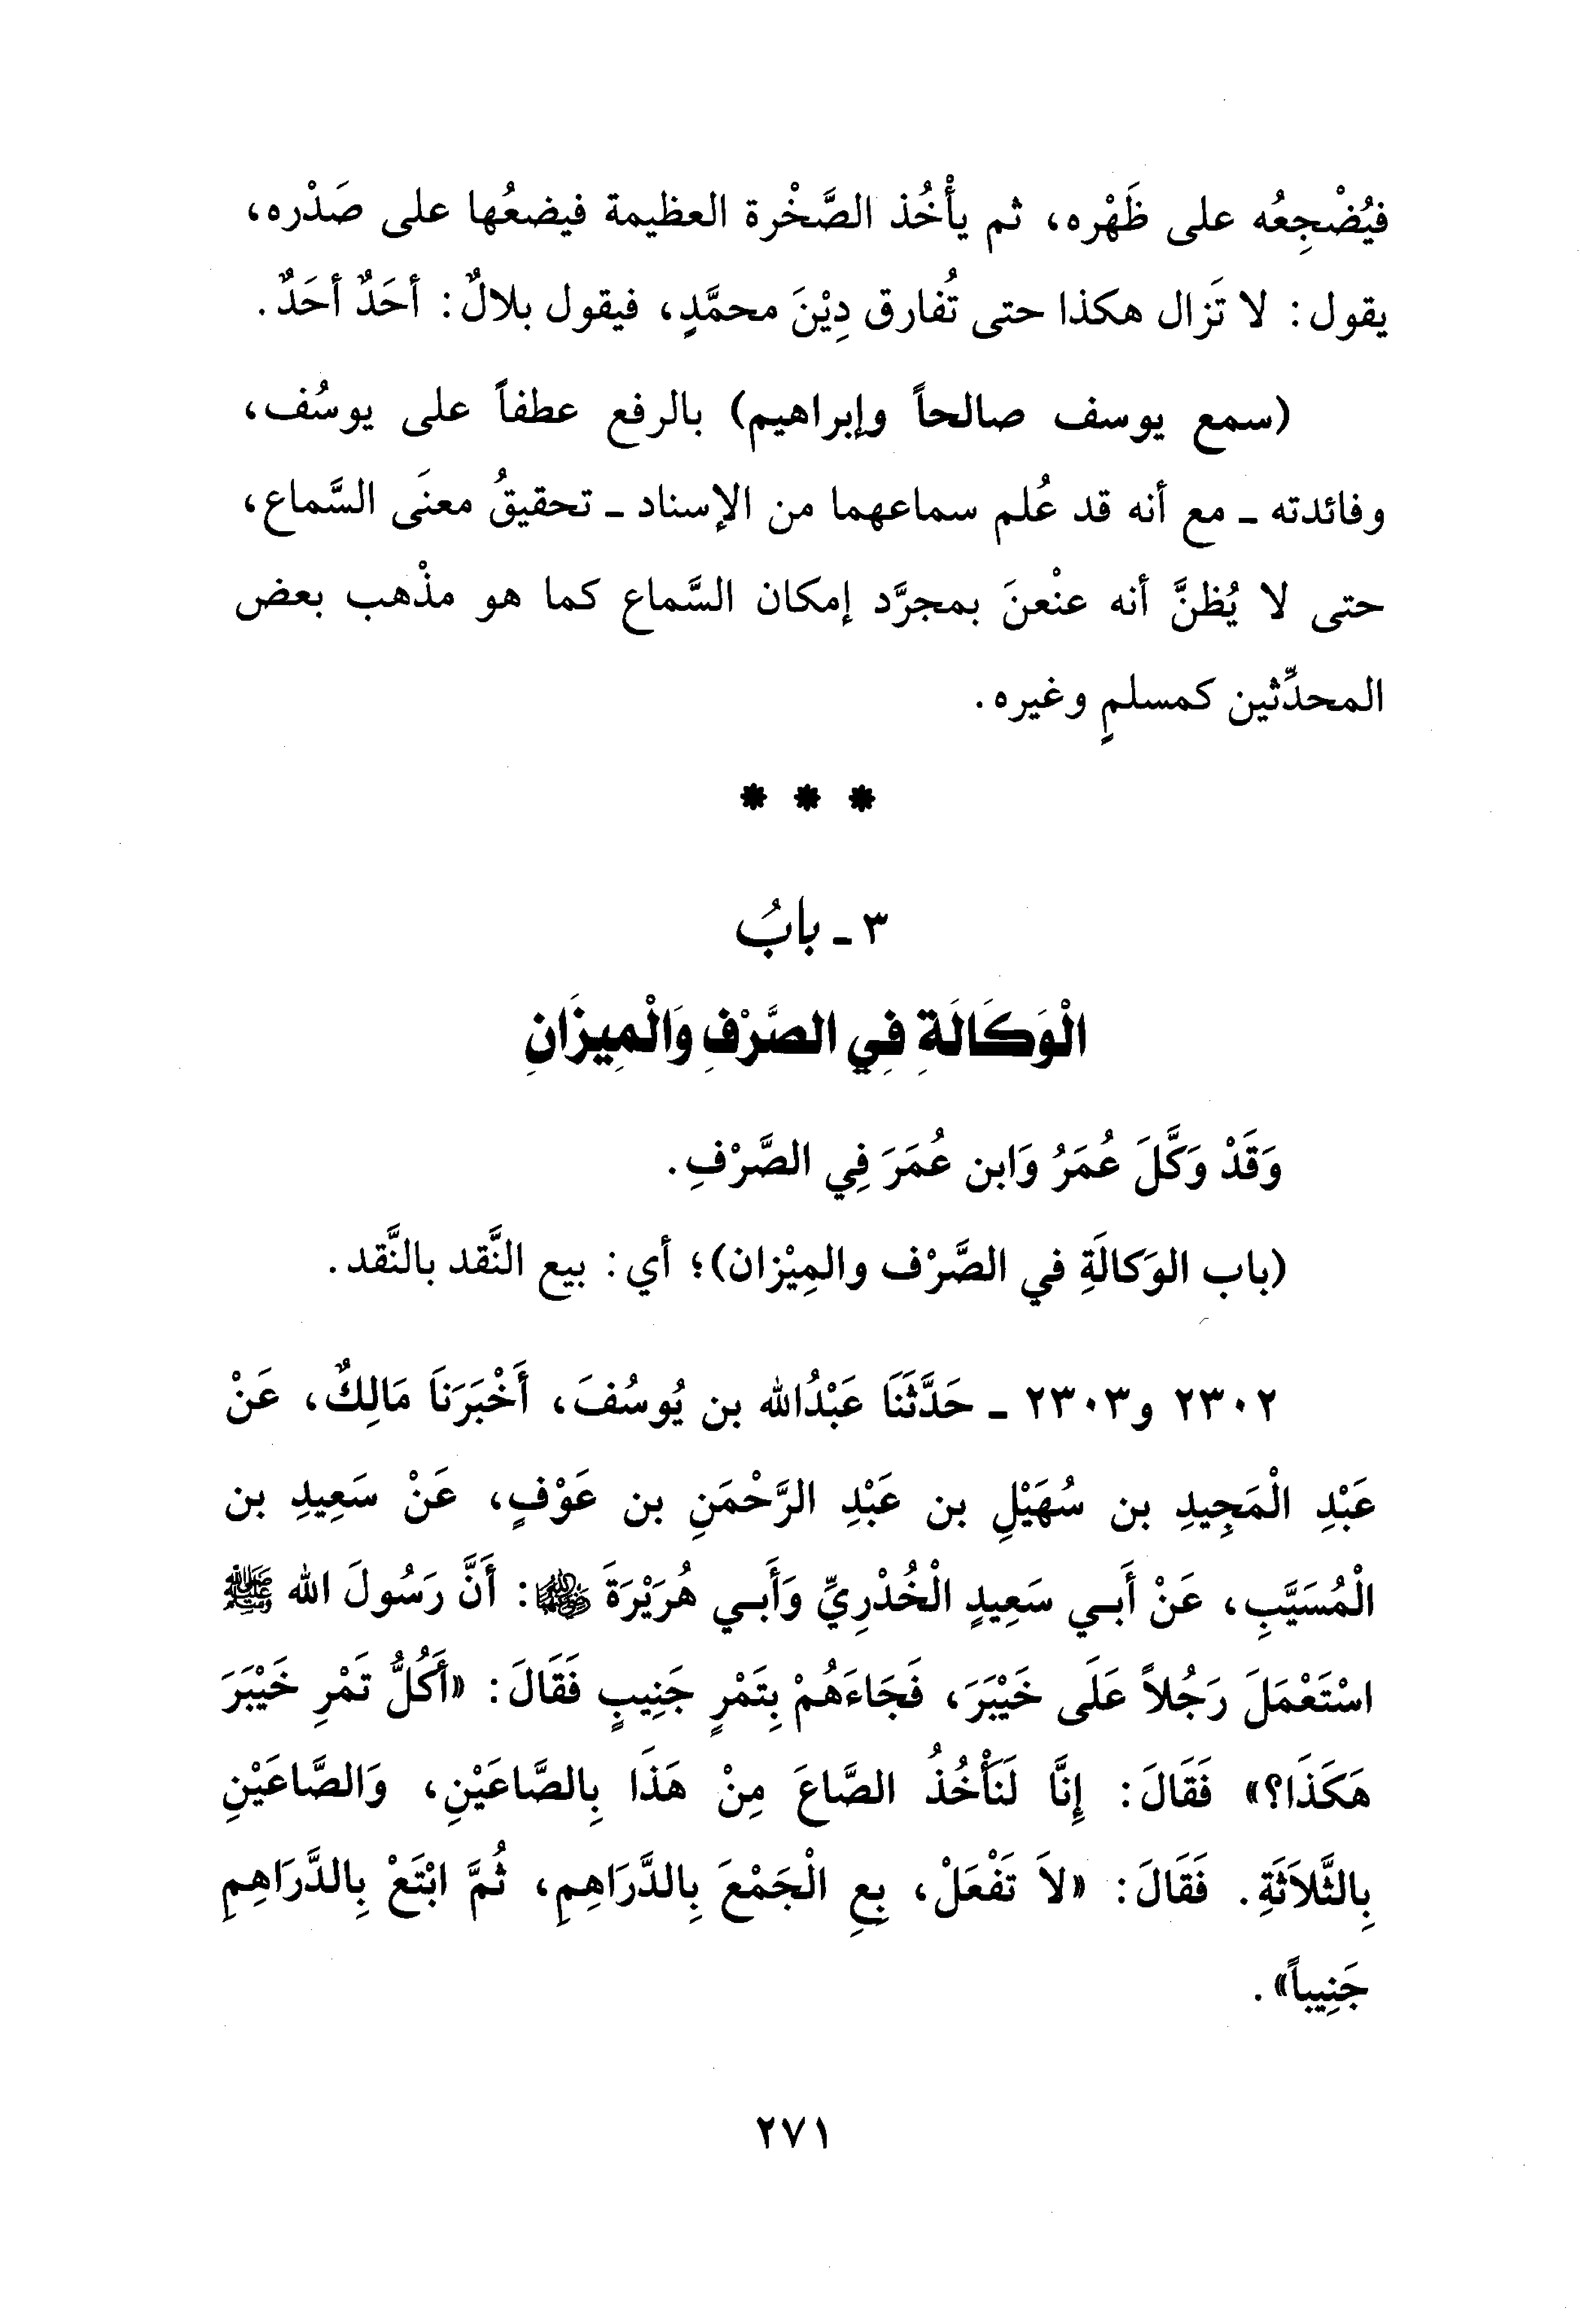 فيُضْجِعُه على ظَهْره، ثم يأْخُذ الصَّخْرة العظيمة فيضعُها على صَدْره،
يقول: لا تَزال هكذا حتى تُفارق دِيْنَ محمَّدٍ، فيقول بلالٌ: أحَدٌ أحَدٌ.
(سمع يوسف صالحاً وإبراهيم) بالرفع عطفاً على يوسُف،
وفائدته ـ مع أنه قد عُلم سماعهما من الإسناد ـ تحقيقُ معنَى السَّماع،
حتى لا يُظنَّ أنه عنْعنَ بمجرَّد إمكان السَّماع كما هو مذْهب بعض
المحدِّثين كمسلمٍ وغيره.
* * *
٣ ـ بابُ
الْوَكَالَةِ فِي الصَّرْفِ وَالْمِيزَانِ
وَقَدْ وَكَّلَ عُمَرُ وَابن عُمَرَ فِي الصَّرْفِ.
(باب الوَكالَةِ في الصَّرْف والمِيْزان)؛ أي: بيع النَّقد بالنَّقد.
٢٣٠٢ و٢٣٠٣ ـ حَدَّثَنَا عَبْدُالله بن يُوسُفَ، أَخْبَرَنَا مَالِكٌ، عَنْ
عَبْدِ الْمَجِيدِ بن سُهَيْلِ بن عَبْدِ الرَّحْمَنِ بن عَوْفٍ، عَنْ سَعِيدِ بن
الْمُسَيَّبِ، عَنْ أَبِي سَعِيدٍ الْخُدْرِيِّ وَأَبِي هُرَيْرَةَ رضي الله عنهما: أَنَّ رَسُولَ الله ﷺ
اسْتَعْمَلَ رَجُلاً عَلَى خَيْبَرَ، فَجَاءَهُمْ بِتَمْرٍ جَنِيبٍ فَقَالَ: «أَكُلُّ تَمْرِ خَيْبَرَ
هَكَذَا؟» فَقَالَ: إِنَّا لَنَأْخُذُ الصَّاعَ مِنْ هَذَا بِالصَّاعَيْنِ، وَالصَّاعَيْنِ
بِالثَّلاَثَةِ. فَقَالَ: «لاَ تَفْعَلْ، بِعِ الْجَمْعَ بِالدَّرَاهِمِ، ثُمَّ ابْتَعْ بِالدَّرَاهِمِ
جَنِيباً».
٢٧١